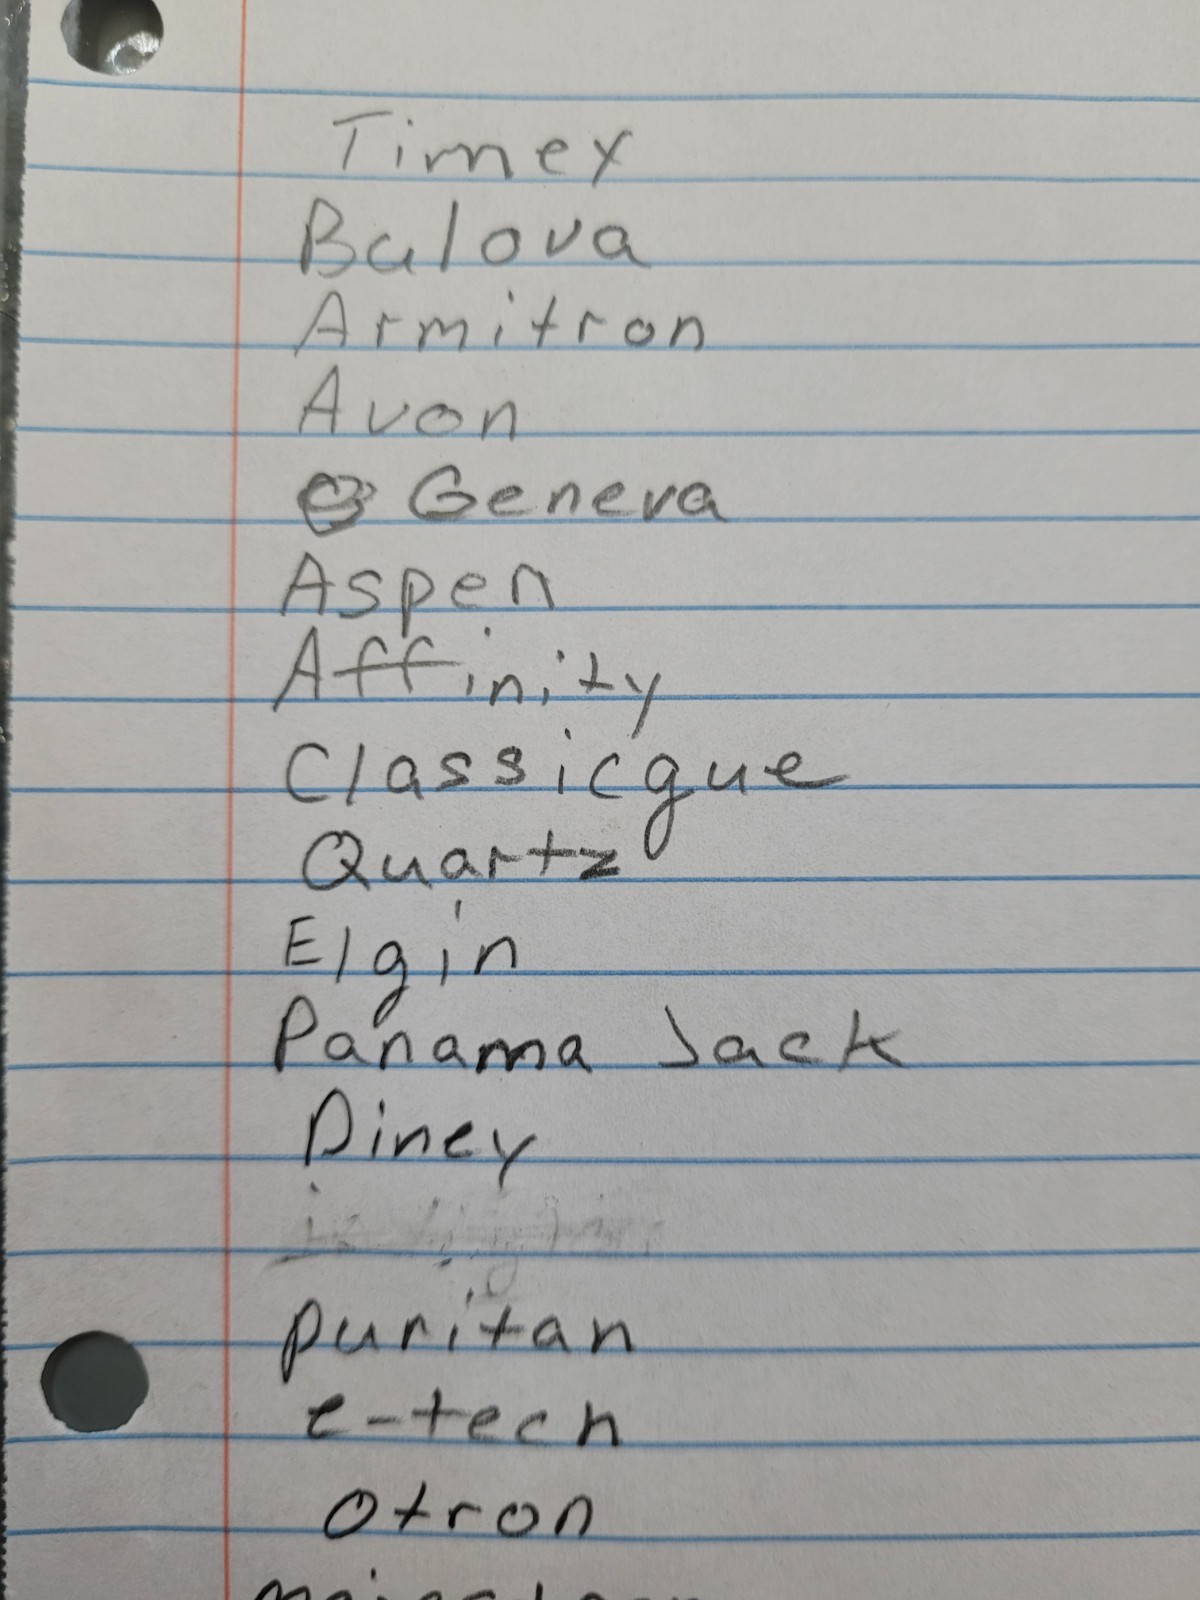 Timex
Bulova
Armitron
Avon
Geneva
Aspen
Affinity
Classicque
Quartz
Elgin
Panama Jack
Diney
puritan
e-tech
otron